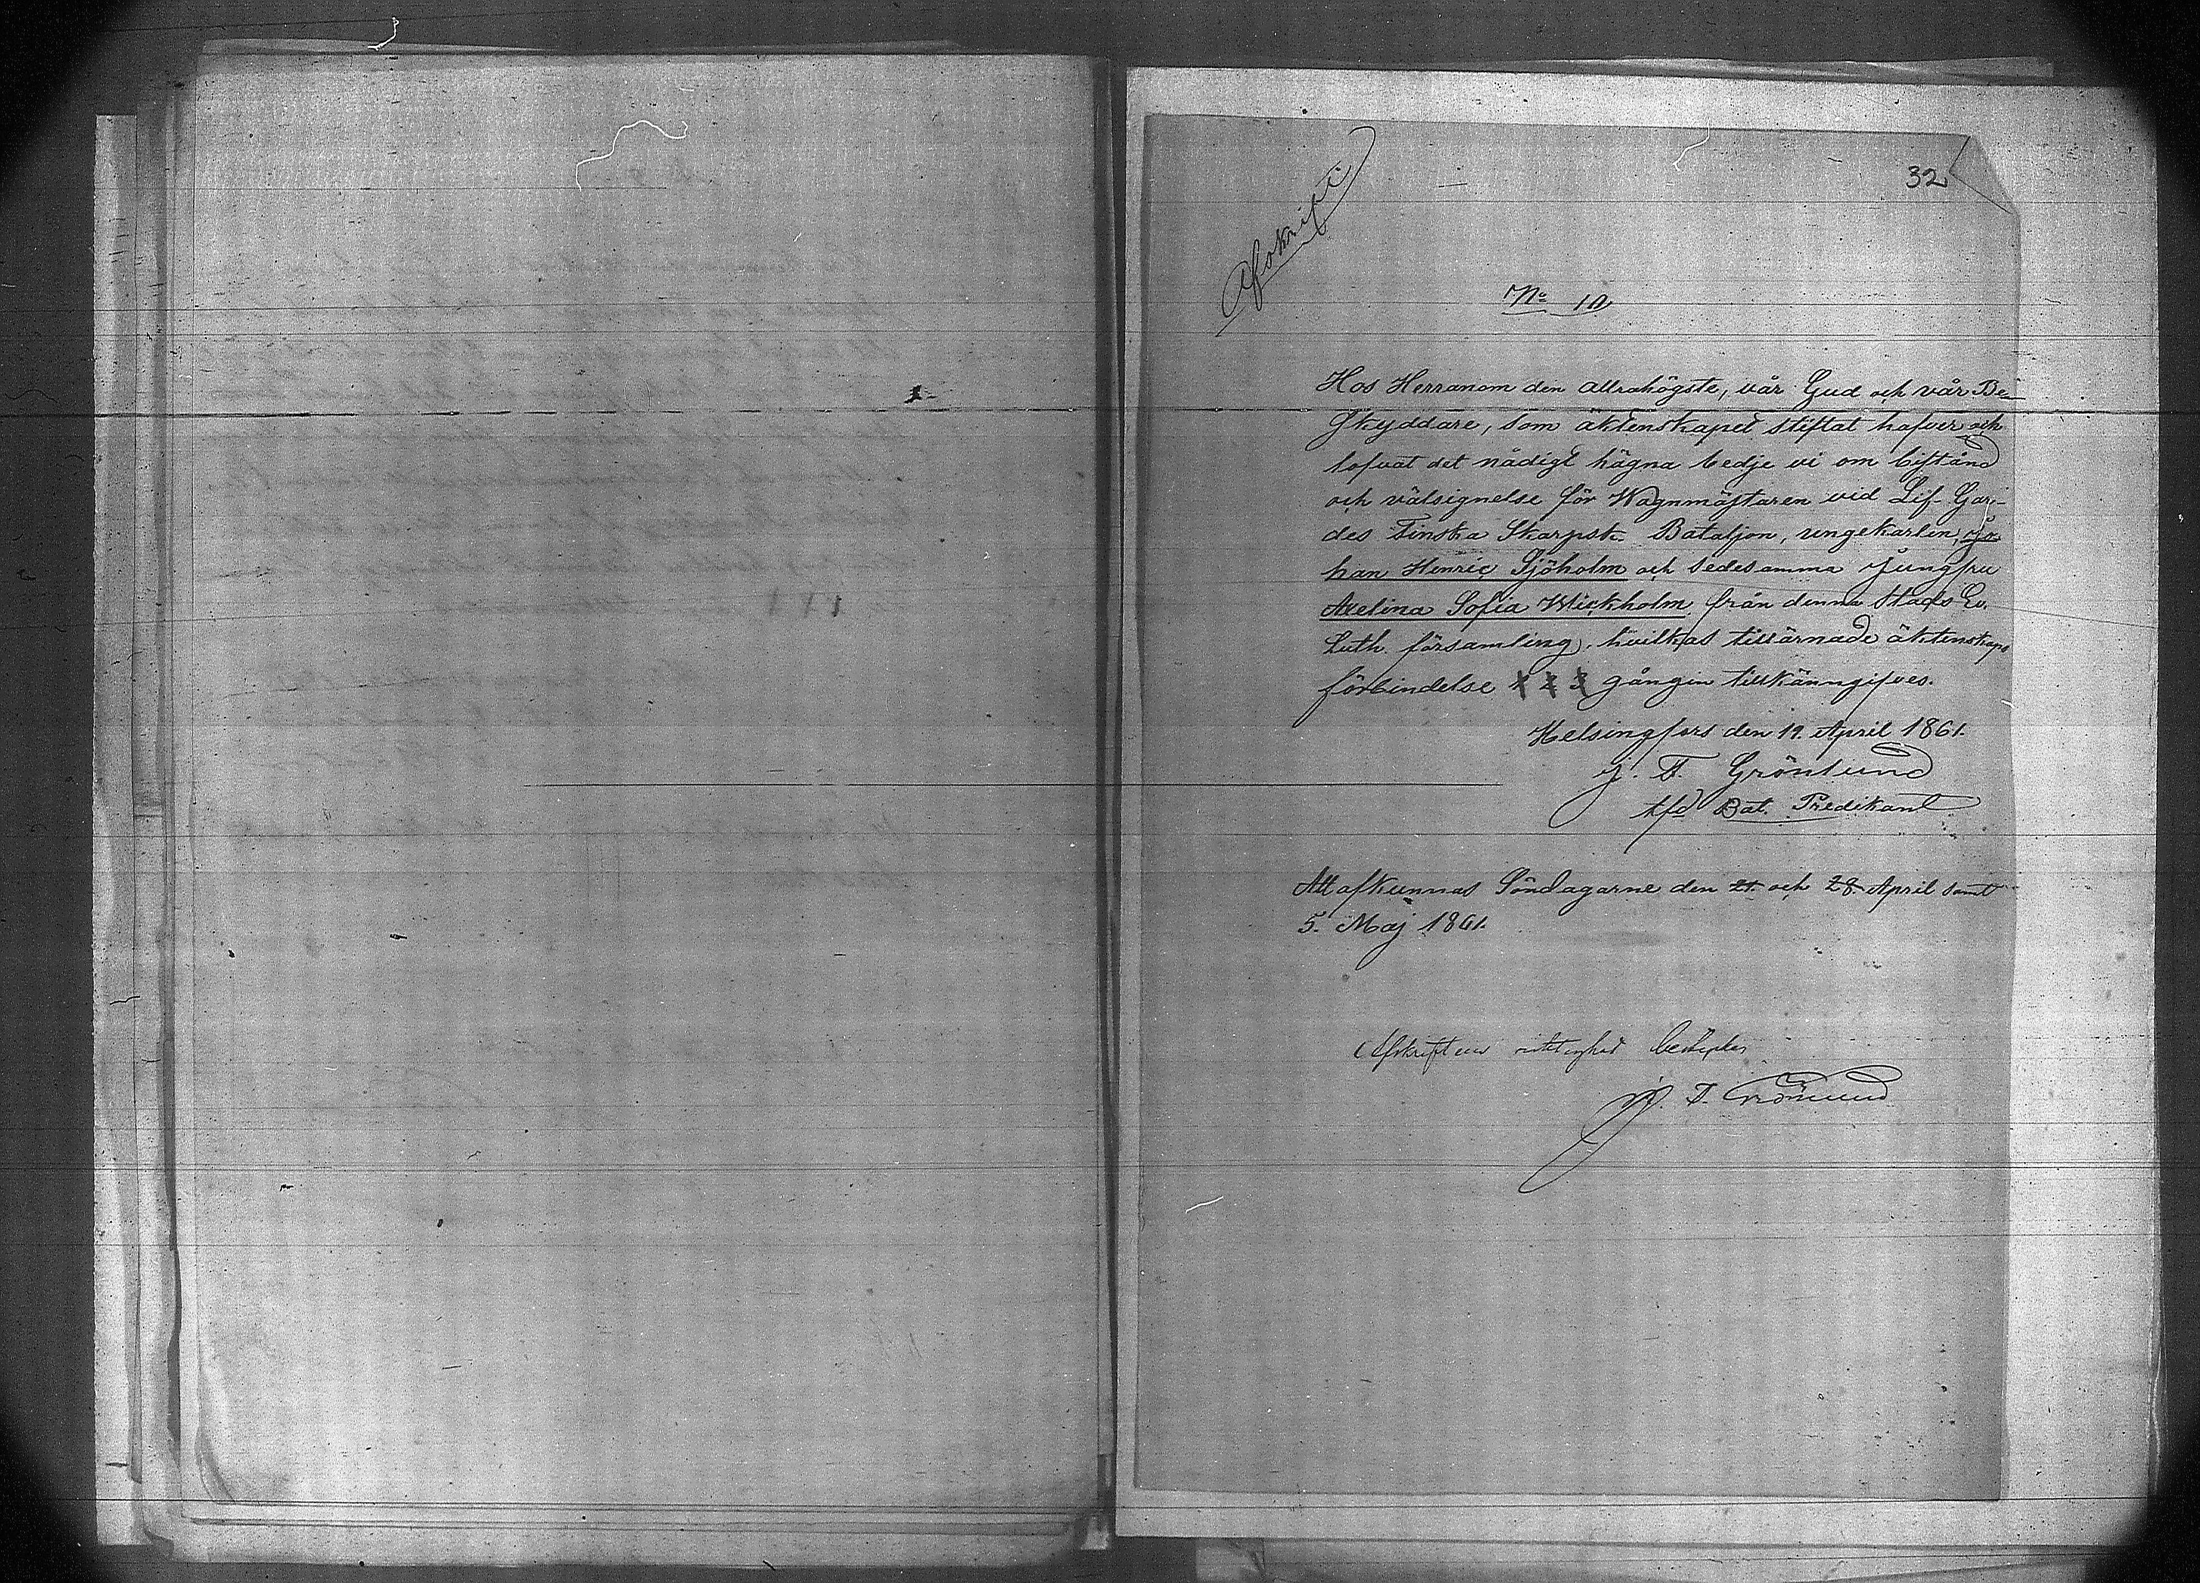 32
Afskrift.
No 10
Hos Herranom den allrahögste, vår Gud och vår Be-
skyddare, som äktenskapet stiftat hafver och
lofvat det nådigt hägna bedje vi om bistånd
och välsignelse för Wagnmästaren vid Lif-Gar-
des Finska Skarpsk. Bataljon, ungekarlen, Jo-
han Henric Sjöholm och sedesamma Jungfru
Axelina Sofia Wickholm från denna Stads Ev.
Luth. församling, hvilkas tillärnade äktenskaps
förbindelse 1 2 3 gången tillkänngifves.
Helsingfors den 19. April 1861.
J. F. Grönlund
tfd Bat. Predikant
Att afkunnas Söndagarne den 21. och 28. April samt
5. Maj 1861.
Afskriftens riktighet bestyrker
J. F. Grönlund